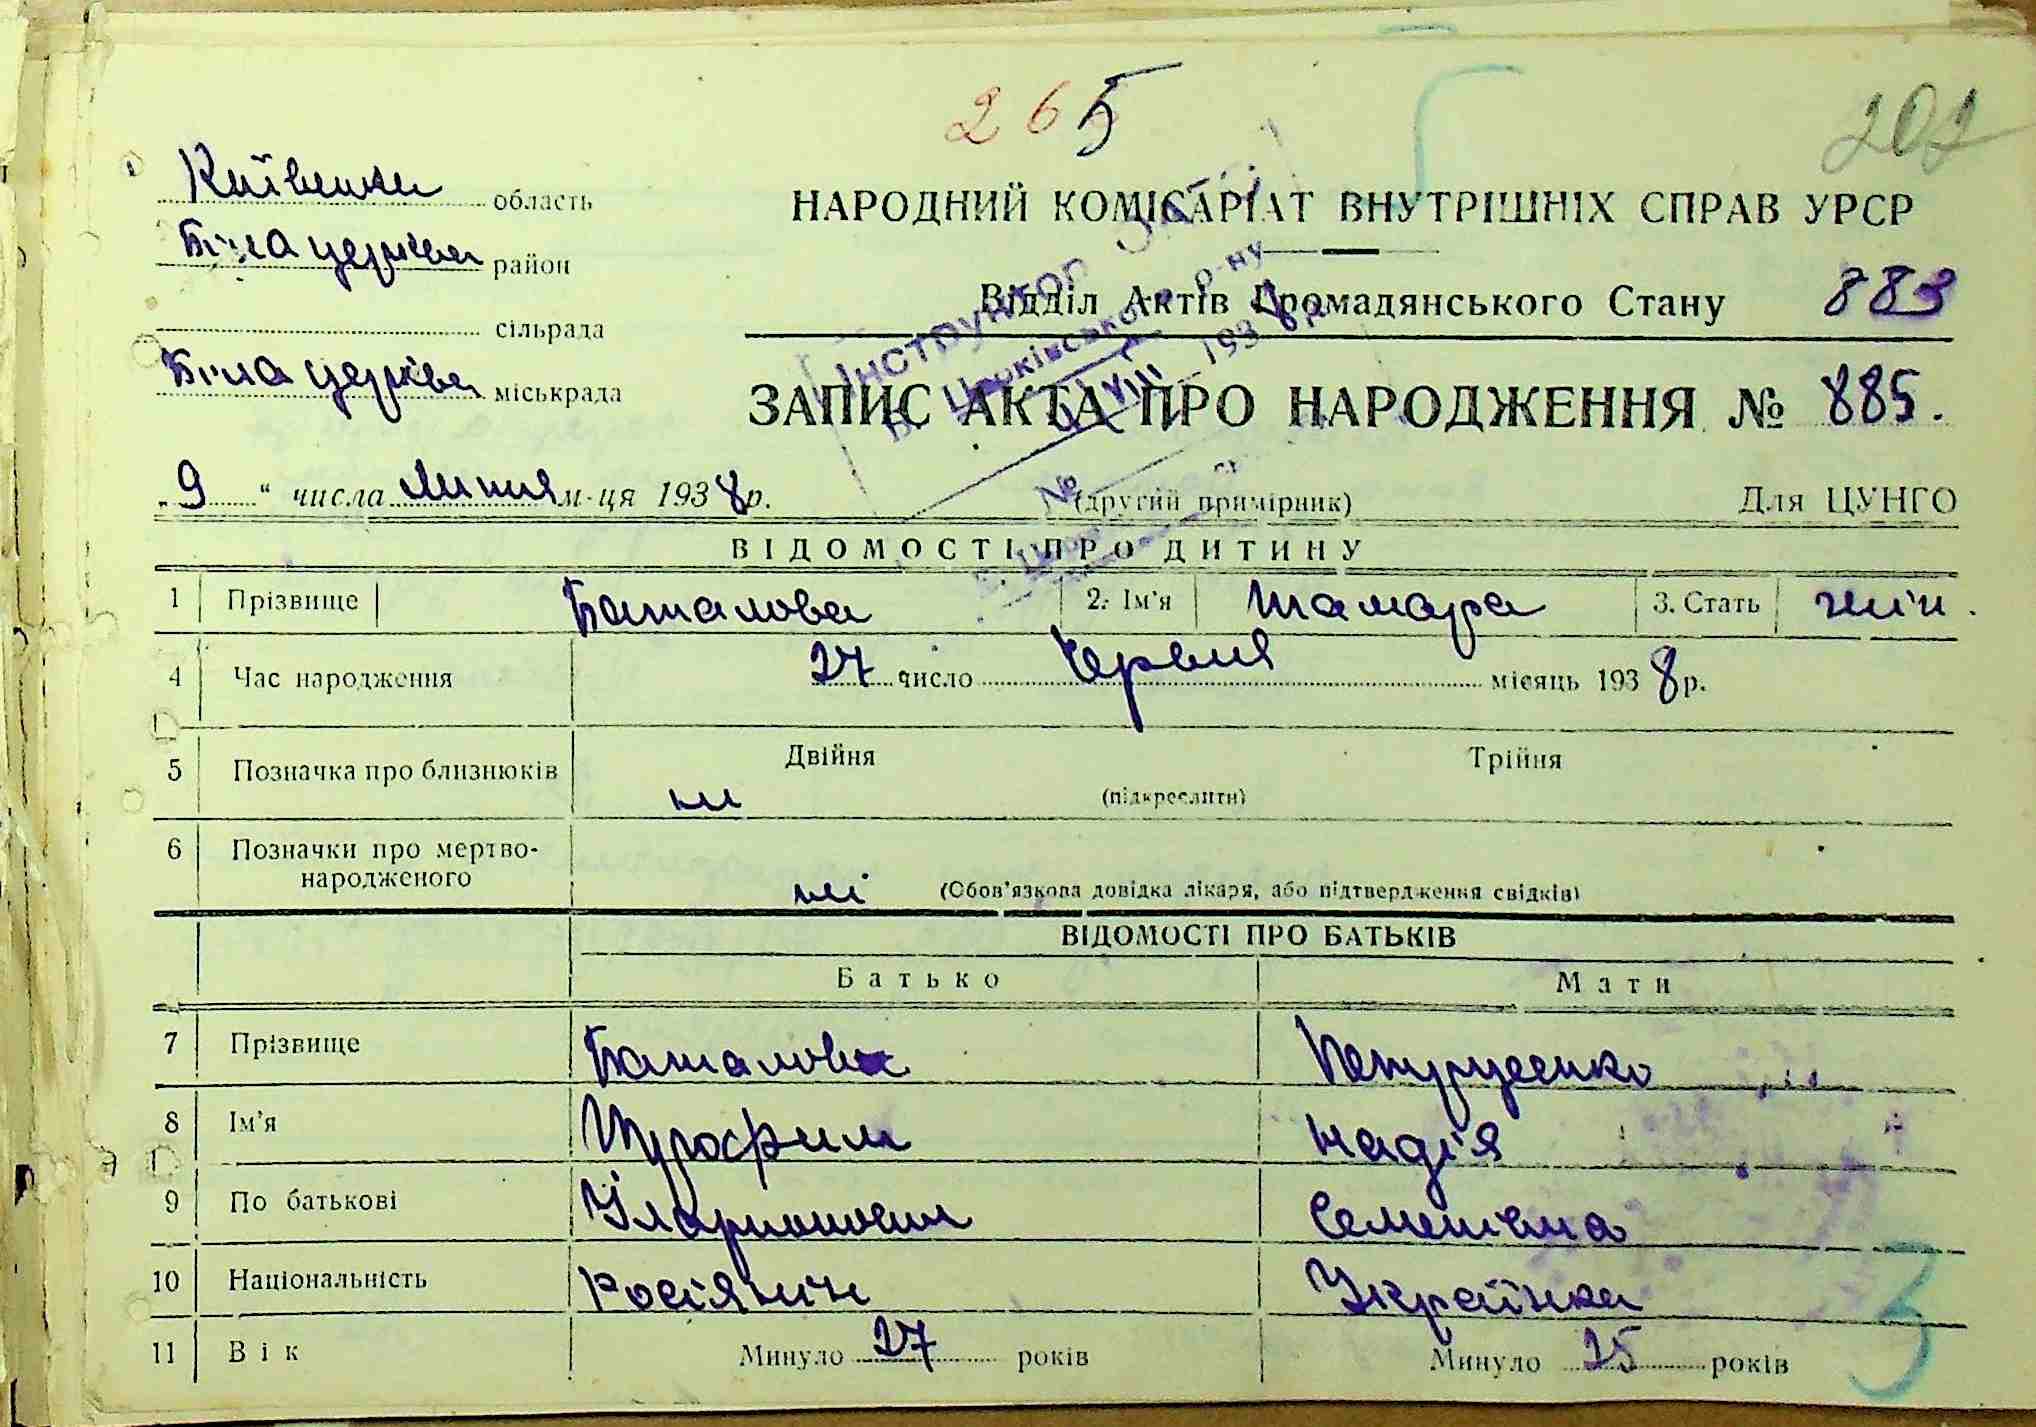 265
202
Київська область
НАРОДНИЙ КОМІСАРІАТ ВНУТРІШНІХ СПРАВ УРСР
Біла церква район
Відділ Актів Громадянського Стану 883
сільрада
Біла церква міськрада
ЗАПИС АКТА ПРО НАРОДЖЕННЯ № 885.
Інструктор ЗАГС
Б. Церківського р-ну
VIII 193
№
„9“ числа липня м-ця 1938 р.
(другий примірник)
Для ЦУНГО
ВІДОМОСТІ ПРО ДИТИНУ
1 Прізвище Баталова 2. Ім'я Тамара 3. Стать жін.
4 Час народження 27 число червня місяць 1938 р.
5 Позначка про близнюків Двійня Трійня
ні (підкреслити)
6 Позначки про мертво-
народженого ні (Обов'язкова довідка лікаря, або підтвердження свідків)
ВІДОМОСТІ ПРО БАТЬКІВ
Батько Мати
7 Прізвище
8 Ім'я Трофим Надія
9 По батькові Семенівна
10 Національність Росіянин Українка
11 Вік Минуло 27 років Минуло 25 років
3